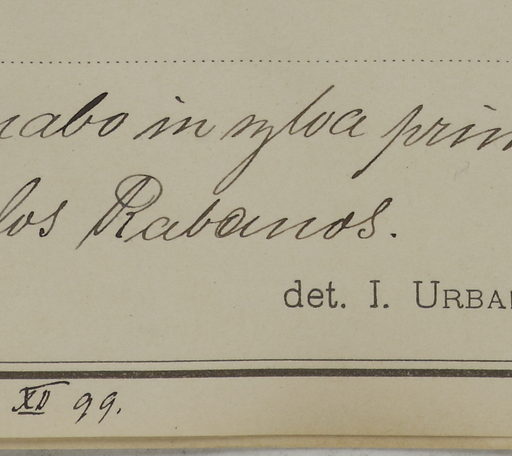 nabo in sylva prim
los Rabanos.
det. I. URBA
XII 99.